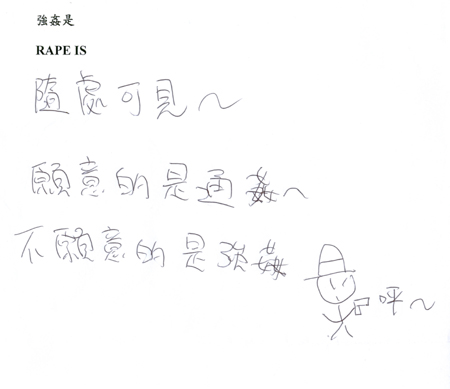 強姦是
RAPE IS
隨處可見～
願意的是通姦～
不願意的是強姦
呼～